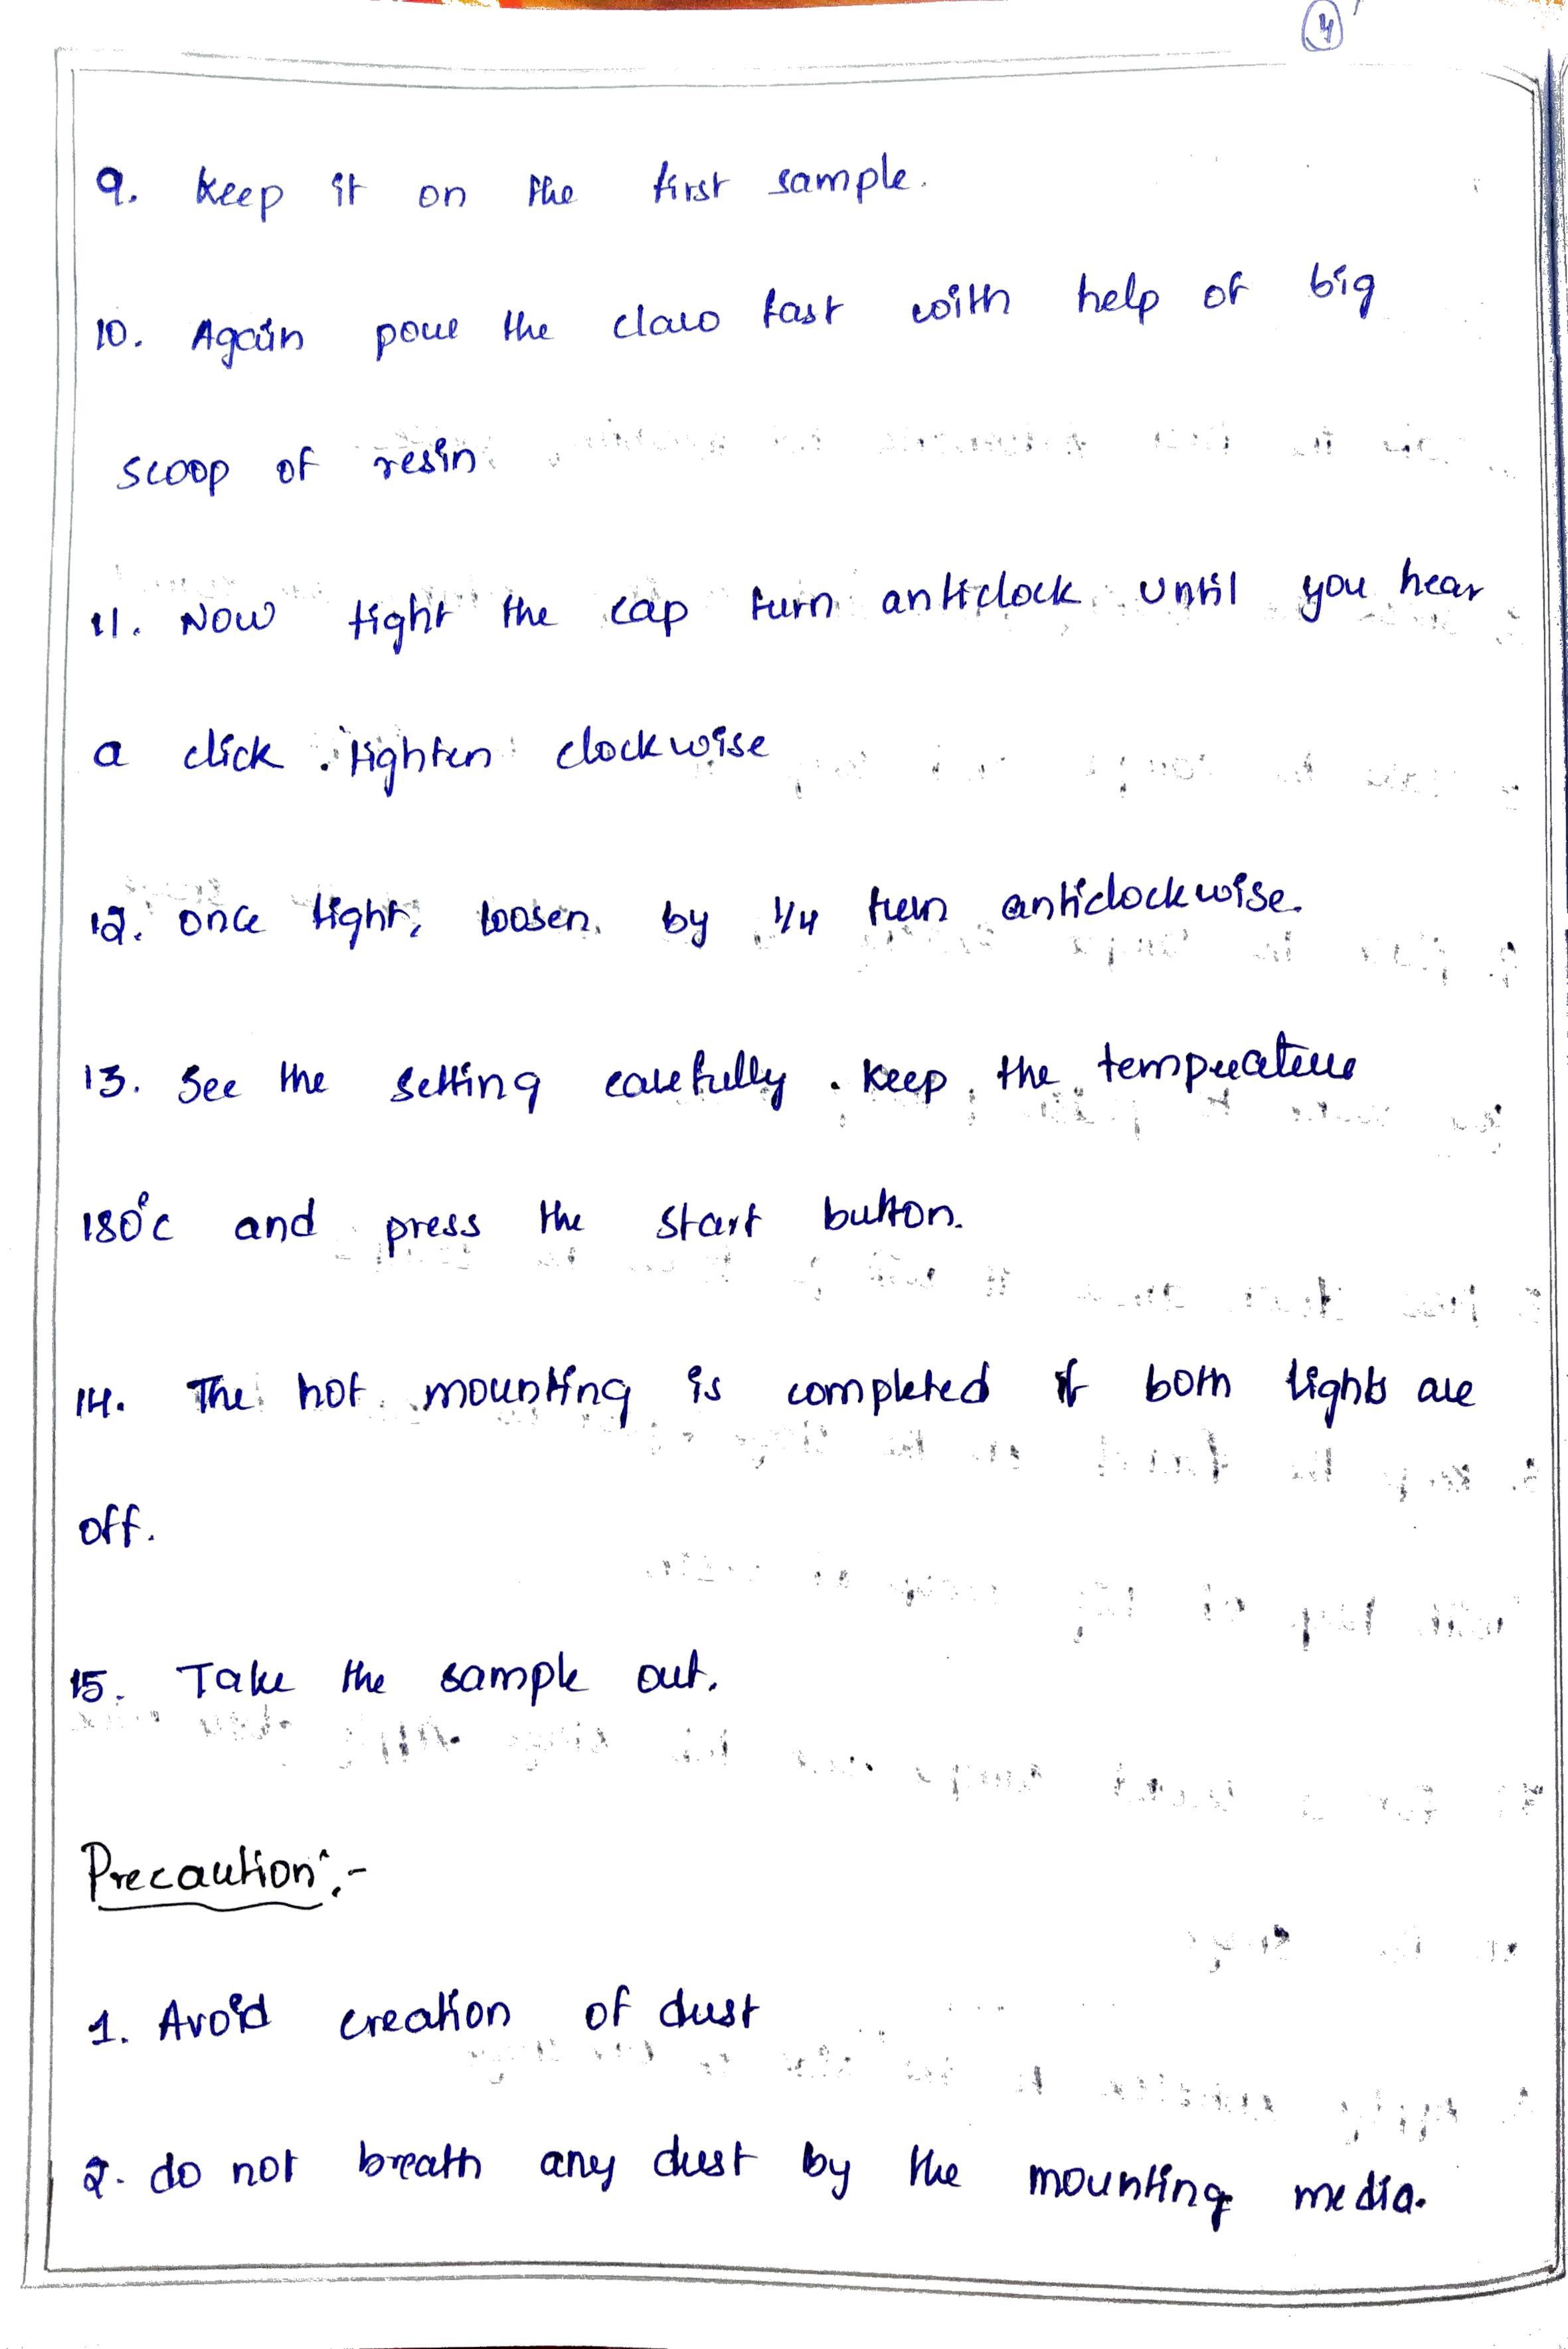 4
9. Keep it on the first sample.
10. Again pour the claro fast with help of big
scoop of resin
11. Now tight the cap turn anticlock until you hear
a click. tighten clockwise
12. once tight, loosen by 1/4 turn anticlockwise.
13. See the setting carefully. Keep the temperature
180°c and press the start button.
14. The hot mounting is completed if both lights are
off.
15. Take the sample out.
Precaution:-
1. Avoid creation of dust
2. do not breath any dust by the mounting media.